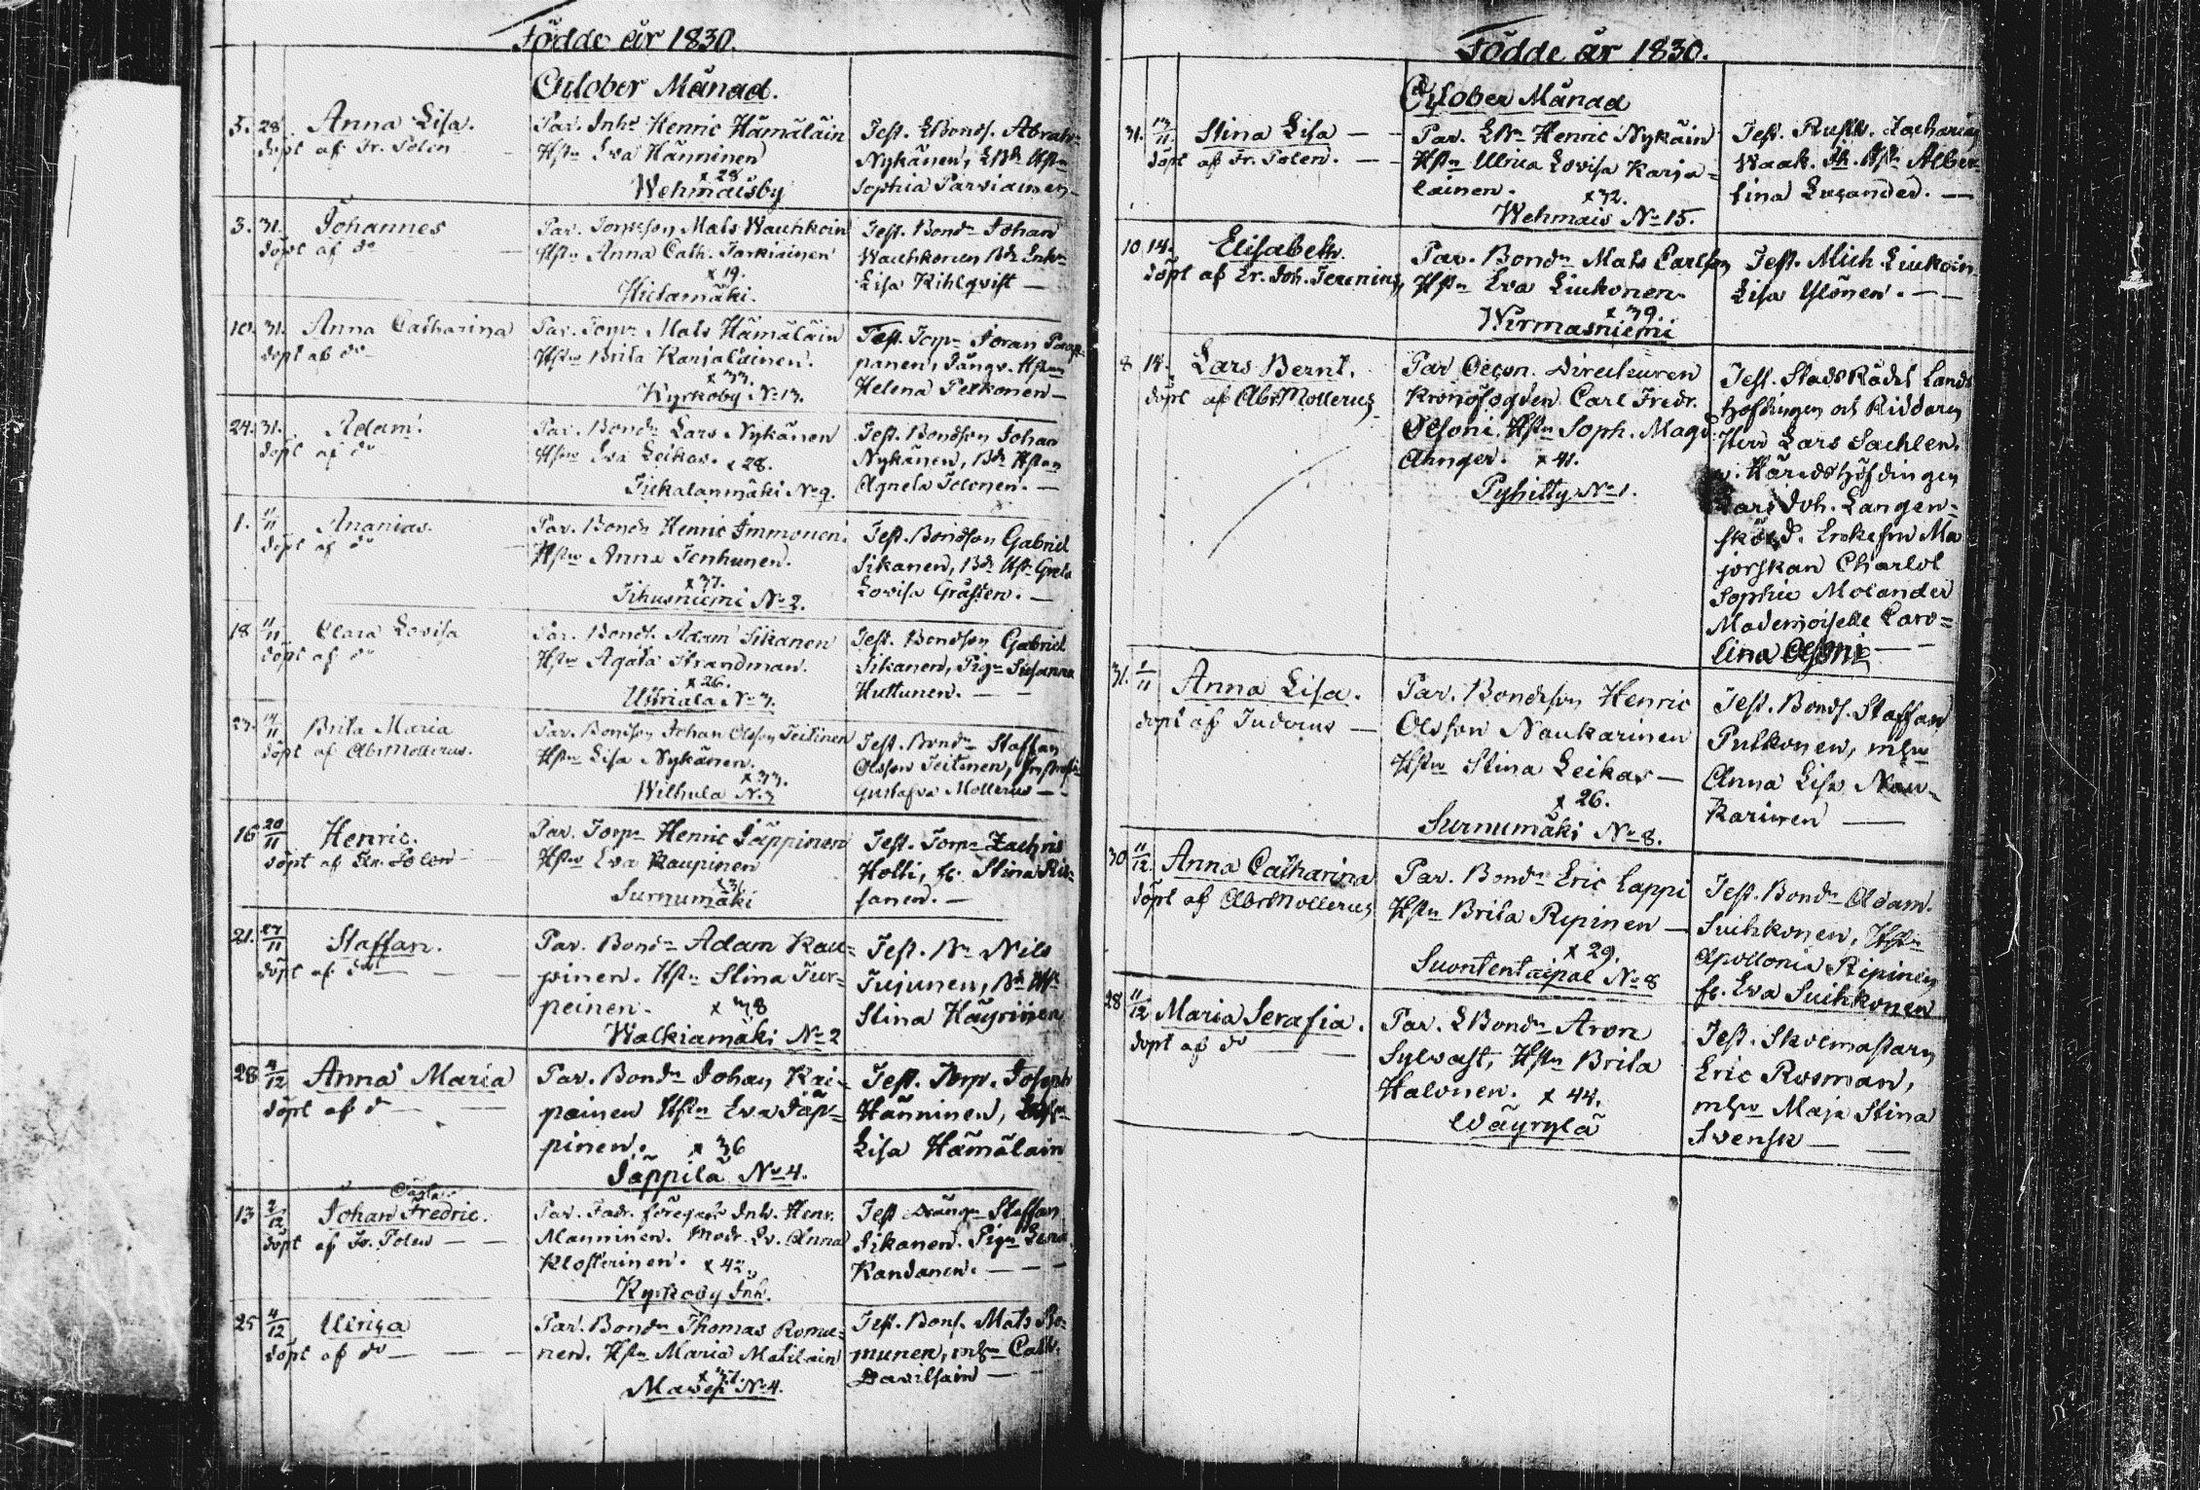 Födde år 1830.
October Månad.
5. 28. Anna Lisa.
döpt af Fr. Polen
Par. Inh. Henric Hämäläin
Hstru Eva Hänninen
x 28
Wehmaisby
Test. LBonds. Abrah.
Nykänen, LBds Hstru
Sophia Parviainen
3. 31. Johannes
döpt af do
Par. Torpson Mats Wauhkoin
Hstru Anna Cath. Tarkiainen
x 19.
Hietamäki.
Test. Bondn Johan
Wauhkonen Bds Enka
Lisa Kihlqvist —
10. 31. Anna Catharina
döpt af do
Par. Torpr Mats Hämäläin
Hstru Brita Karjalainen.
x 33.
Kyrkoby No 13.
Test. Torpn Göran Papp-
panen, Hstru
Helena Pelkonen —
24. 31. Adam.
döpt af do
Par. Bondn Lars Nykänen
Hstru Eva Leikas. x 28.
No 9.
Test. Bondson Johan
Nykänen, Bds Hstru
Agneta Tolonen. —
1. 11/11 Ananias.
döpt af do
Par. Bondn Henric Immonen.
Hstru Anna Tenhunen.
x 37.
Tihusniemi No 2.
Test. Bondson Gabriel
Sikanen, Bds Hstru Greta
Lovisa Gråsten. —
18. 11/11 Clara Lovisa
döpt af do
Par. Bonds. Adam Sikanen
Hstru Agata Strandman.
x 26.
No 3.
Test. Bondson Gabriel
Sikanen, Pign Susanna
Huttunen. —
27. 14/11 Brita Maria
döpt af Abr Mollerus.
Par. Bondson Johan Olsson Teitinen
Hstru Lisa Nykänen.
x 33.
Wilhula No 7
Test. Bondn Staffan
Olsson Teitinen,
Gustafva Mollerus —
16. 20/11 Henric.
döpt af Fr. Polen
Par. Torpn Henric Jäppinen
Hstru Eva Kaupinen
x 31.
Surnumäki
Test. Torpn Zachris
Holli, fl. Stina Ris-
sanen. —
21. 27/11 Staffan.
döpt af do — —
Par. Bondn Adam Kau-
pinen. Hstru Stina Tur-
peinen. x 38
Walkiamäki No 2
Test. Bn Nils
Tujunen, Bds Hstru
Stina Käyriinen
28 4/12 Anna Maria
döpt af do — —
Par. Bondn Johan Kai-
painen Hstru Eva Jäp-
pinen. x 36
Jäppilä No 4.
Test. Torp. Joseph
Hänninen,
Lisa Hämälain
13 2/12 Johan Fredric.
döpt af Fr. Polen — —
Par. Fadr. föregaf. Inh. Henr.
Manninen. Modr. Lv. Anna
Klosterinen. x 42.
Kyrkoby Inh.
Test Drängn Staffan
Sikanen. Pign Lena
Kandanen. — —
25 4/12 Ulrica
döpt af do — —
Par. Bondn Thomas Romu-
nen. Hstru Maria Matilain
x 37.
No 4.
Test. Bons. Mats Ro-
munen, mhu Cath.
Davilsain —
Födde år 1830.
October Månad
31. 13/11 Stina Lisa — —
döpt af Fr. Polen. — —
Par. LBn Henric Nykäin
Hstru Ulrica Lovisa Karja-
lainen. x 32.
Wehmais No 15.
Test. Rustb. Zacharias
Waak. Hstru Alber-
tina Lucander. —
10 14. Elisabeth.
döpt af Lr. Joh. Ferenius,
Par. Bondn Mats Carlson
Hstru Eva Liukonen
x 39.
Wirmasniemi
Test. Mich. Liukoin
Lisa Ylönen. — —
8 14. Lars Bernt.
döpt af Abr Mollerus
Par Oecon. Directeuren
Kronofogden Carl Fredr.
Olsoni. Hstru Soph. Magd.
Ahnger. x 41.
Pyhitty No 1.
Test. StadsRådet Lands
höfdingen och Riddaren
Herr Lars Sachlen.
v. Häradshöfdingen
Lars Joh. Langen-
sköld. Enkefru Ma
jorskan Charlot
Sophie Molander
Mademoiselle Caro-
lina Olsoni — —
31. 1/11 Anna Lisa.
döpt af Juderus —
Par. Bondeson Henric
Olsson Naukarinen
Hstru Stina Leikas —
x 26.
Surnumäki No 8.
Test. Bonds. Staffan
Pulkonen, mhu
Anna Lisa Nau-
karinen —
30 11/12 Anna Catharina
döpt af Abr Mollerus
Par. Bondn Eric Lappi
Hstru Brita Ripinen —
x 29.
Suontentaipal No 8
Test. Bondn Adam.
Suihkonen, Hstru
Apollonia Ripinen
fl. Eva Suihkonen
28 11/12 Maria Serafia.
döpt af do —
Par. LBondn Aron
Sylvast, Hstru Brita
Halonen. x 44.
Wäyrylä
Test. Skolmastarn
Eric Rosman,
mhu Maja Stina
Svensk — —